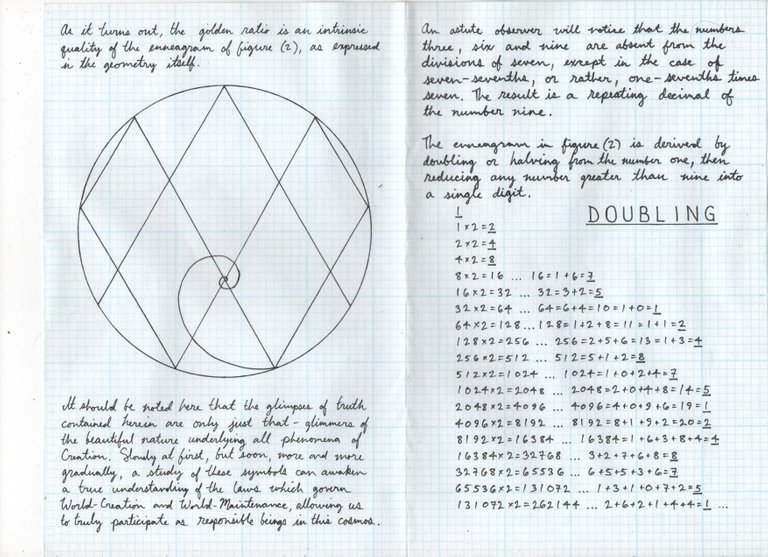 As it turns out, the golden ratio is an intrinsic
quality of the enneagram of figure (2), as expressed
in the geometry itself.
It should be noted here that the glimpses of truth
contained herein are only just that - glimmers
of the beautiful nature underlying all phenomena of
Creation. Slowly at first, but soon, more and more
gradually, a study of these symbols can awaken
a true understanding of the laws which govern
World-Creation and World-Maintenance, allowing us
to truly participate as responsible beings in this cosmos.
An astute observer will notice that the numbers
three, six and nine are absent from the
divisions of seven, except in the case of
seven-sevenths, or rather, one-sevenths times
seven. The result is a repeating decimal of
the number nine.
The enneagram in figure (2) is derived by
doubling or halving from the number one, then
reducing any number greater than nine into
a single digit.
DOUBLING
1
1×2=2
2×2=4
4×2=8
8×2=16 ... 16=1+6=7
16×2=32 ... 32=3+2=5
32×2=64 ... 64=6+4=10=1+0=1
64×2=128... 128=1+2+8=11=1+1=2
128×2=256 ... 256=2+5+6=13=1+3=4
256×2=512 ... 512=5+1+2=8
512×2=1024 ... 1024=1+0+2+4=7
1024×2=2048 ... 2048=2+0+4+8=14=5
2048×2=4096 ... 4096=4+0+9+6=19=1
4096×2=8192 ... 8192=8+1+9+2=20=2
8192×2=16384 ... 16384=1+6+3+8+4=4
16384×2=32768 ... 3+2+7+6+8=8
32768×2=65536 ... 6+5+5+3+6=7
65536×2=131072 ... 1+3+1+0+7+2=5
131072×2=262144 ... 2+6+2+1+4+4=1 ...